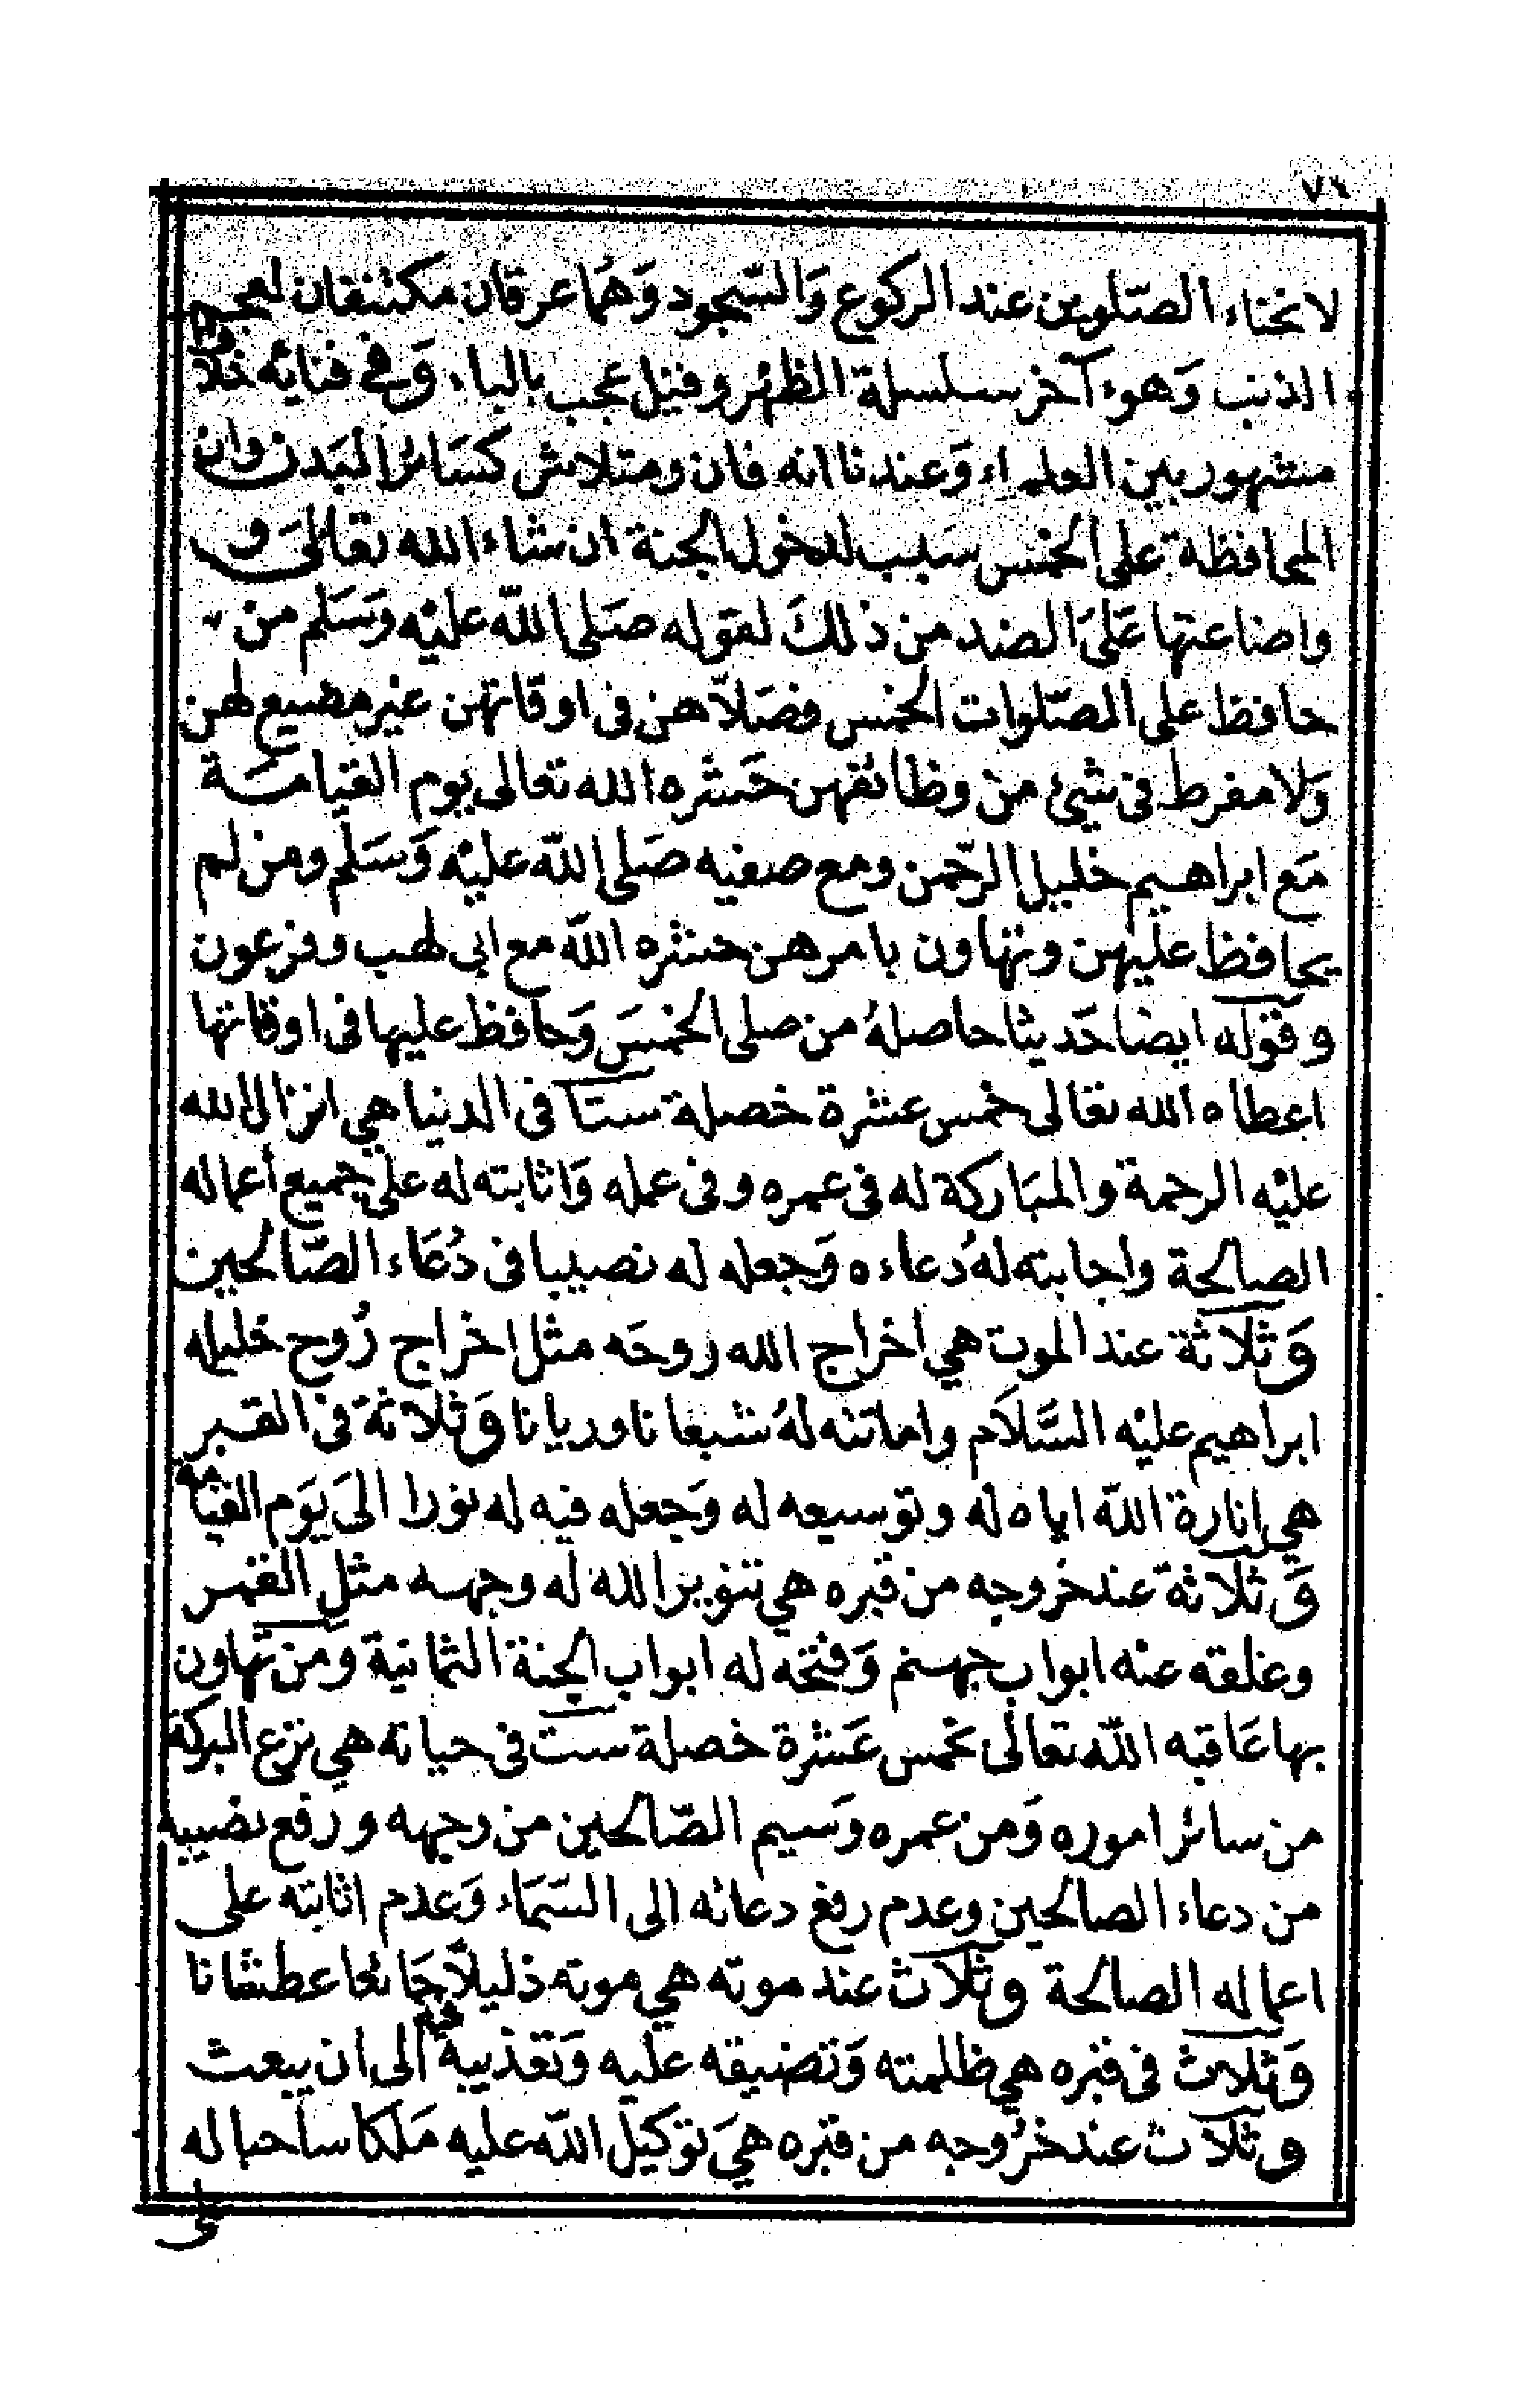 ٧٦
لانحناء الصّلوين عند الركوع وَالسّجود وَهُما عرقان مكتنفان لعجم
الذنب وَهوء آخر سلسلة الظهر وقيل عجب بالباء وَفي فنائه خلاف
مشهور بين العلماء وَعندنا انه فان ومتلاش كسَائر البَدن وان
المحافظة على الخمس سبب لدخول الجنة ان شاء الله تعالىَ و
واضاعتها عَلىَ الضد من ذلكَ لقوله صَلى اللّه عليْه وَسَلم من
حافظ على الصّلوات الخمس فصَلاّهن فى اوقاتهن غير مضيع لهن
وَلا مفرط فى شيئ من وظائفهن حَشره الله تعالى يوم القيامَة
مَع ابراهيم خليل الرّحمن ومع صفيه صَلى اللّه عليْه وَسَلم ومن لم
يحافظ عليهن وتهاون بامرهن حشره اللّه مع ابى لهب وفرعون
وقوله ايضا حَديثا حاصلهُ من صلى الخمسَ وَحافظ عليها فى اوقاتها
اعطاه الله تعالى خمس عشرة خصلة ستا فى الدنيا هي انزال الله
عليْه الرحمة والمبَاركة له فى عمره وفى عمله وَاثابته له على جميع أعماله
الصالحة واجابته لهُ دعاءه وَجعله له نصيبا فى دُعَاء الصّالحين
وَثلاثة عند الموت هي اخراج الله روحَه مثل اخراج رُوح خليله
ابراهيم عليْه السَّلاَم واماتته لهُ شبعانا وريانا وَثلاثة فى القبر
هي انارة اللّه اياه له وتوسيعه له وَجعله فيه له نورا الىَ يوَم القيامة
وَثلاثة عند خروجه من قبره هي تنوير الله له وجهه مثل القمر
وغلقه عنْه ابواب جهنم وَفتحه له ابواب الجنة الثمانية ومَن تهاون
بها عَاقبه اللّه تعالى بخمس عَشرة خصلة ست فى حياته هي نزع البركة
من سائر اموره وَمن عمره وَسيم الصّالحين من وجهه ورفع نصيبه
من دعاء الصالحين وعدم رفع دعائه الى السَّمَاء وَعدم اثابته على
اعماله الصالحة وثلاث عند موته هي موته ذليلاً جَائعا عطشانا
وَثلاث فى قبره هي ظلمته وَتضيقه عليه وَتعذيبه فيه الى ان يبعث
وثلاث عند خرُوجه من قبره هيَ توكيل اللّه عليه مَلكا ساحبا له
على